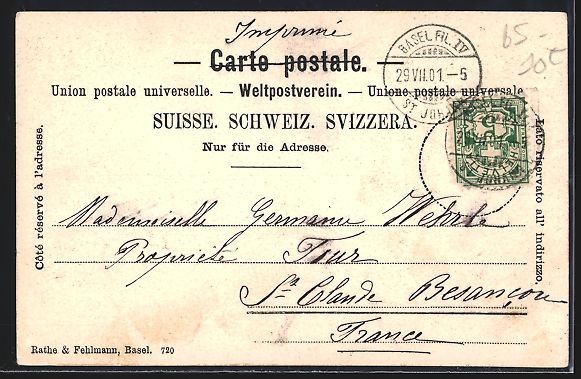 Imprimé
65.-
BASEL FIL. IV
— Carte postale. —
29 VII.01.–5
Union postale universelle. — Weltpostverein. — Unione postale universale
ST. JOH
SUISSE. SCHWEIZ. SVIZZERA.
Nur für die Adresse.
HELVETIA
Côté réservé à l'adresse.
Lato riservato all' indirizzo.
Mademoiselle Germaine Wehrlé
Propriété Four
St Claude Besançon
France
Rathe & Fehlmann, Basel. 720